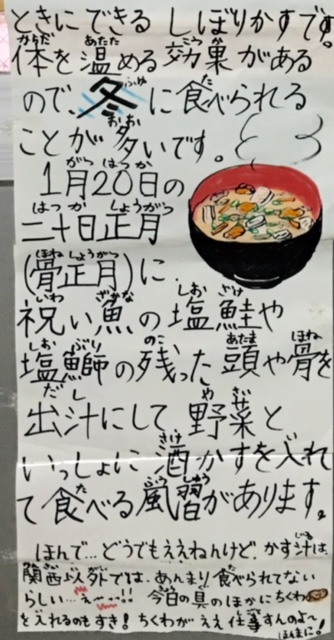 ときにできる しぼりかすです。
体を温める効果がある
ので、冬に食べられる
ことが多いです。
1月20日の
二十日正月
(骨正月)に
祝い魚の塩鮭や
塩鰤の残った頭や骨を
出汁にして 野菜と
いっしょに酒かすを入れ
て食べる風習があります。
ほんで…どうでもええねんけど、かす汁は、
関西以外では、あんまり食べられてない
らしい…えーー!! 今日の具のほかにちくわ
を入れるのもすき! ちくわがええ仕事すんのよ〜